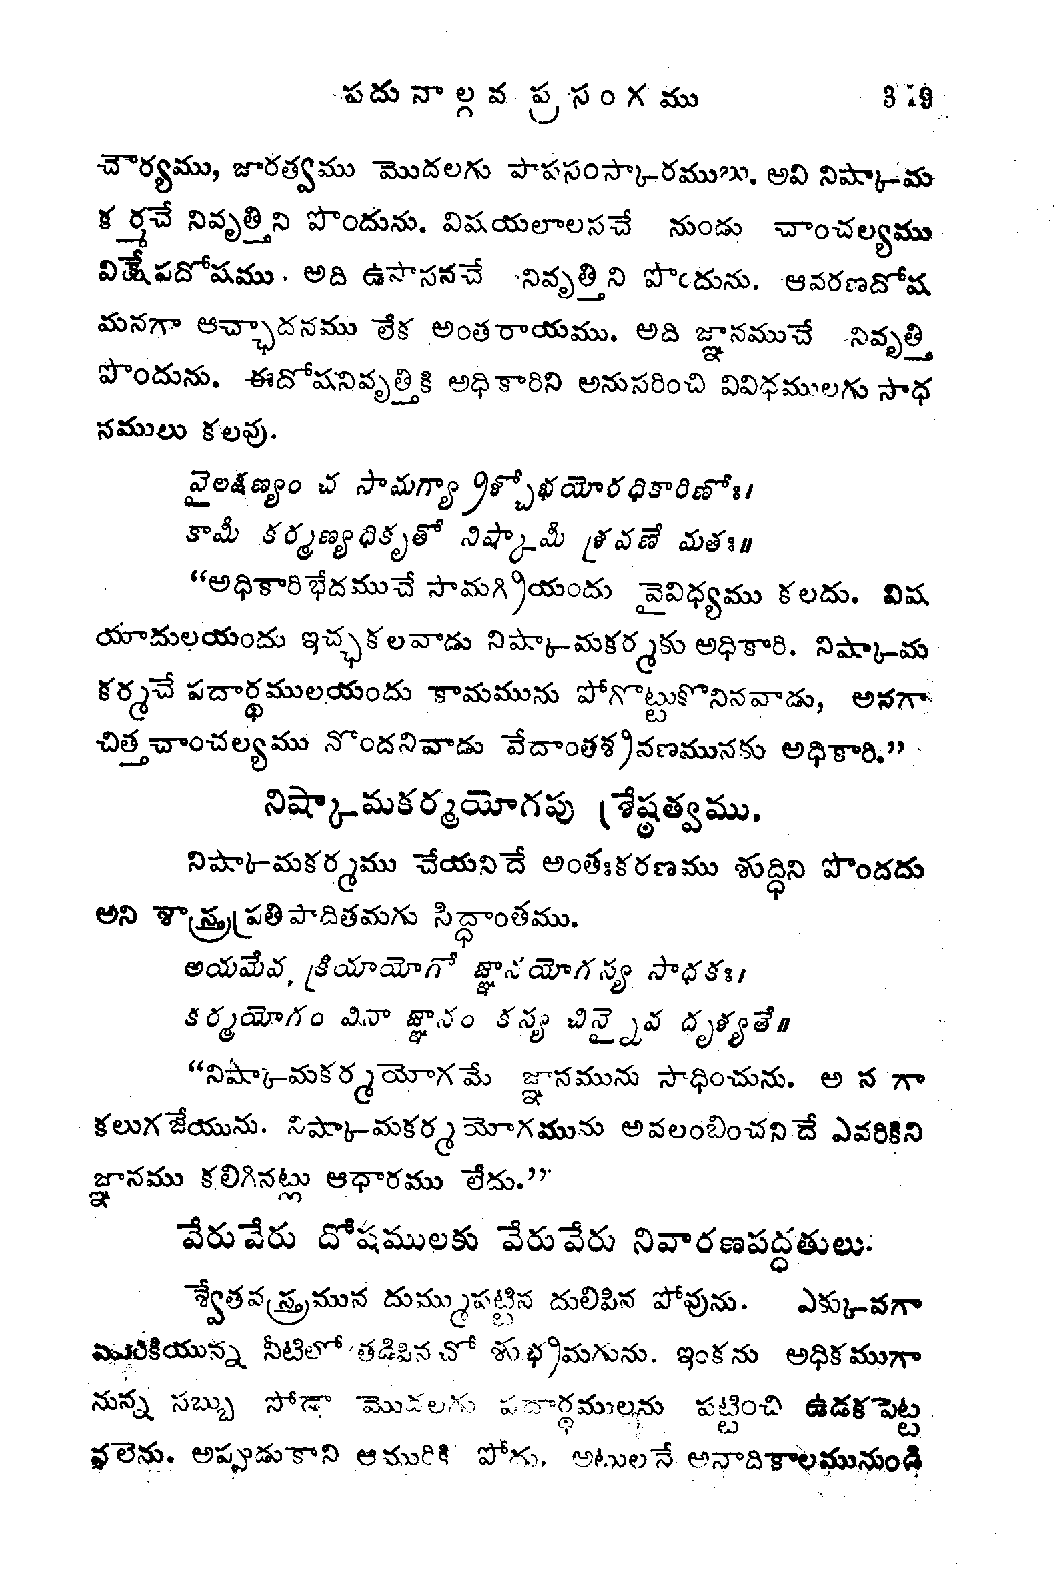 పదునాల్గవ ప్రసంగము
చౌర్యము, జారత్వము మొదలగు పాపసంస్కారములు. అవి నిష్కామ
కర్మచే నివృత్తిని పొందును. విషయలాలసచే నుండు చాంచల్యము
విక్షేపదోషము. అది ఉపాసనచే నివృత్తిని పొందును. ఆవరణదోష
మనగా ఆచ్ఛాదనము లేక అంతరాయము. అది జ్ఞానముచే నివృత్తి
పొందును. ఈదోషనివృత్తికి అధికారిని అనుసరించి వివిధములగు సాధ
నములు కలవు.
వైలక్షణ్యం చ సామగ్ర్యాశ్చోభయోరధికారిణోః।
కామీ కర్మణ్యధికృతో నిష్కామీ శ్రవణే మతః॥
“అధికారిభేదముచే సామగ్రియందు వైవిధ్యము కలదు. విష
యాదులయందు ఇచ్ఛకలవాడు నిష్కామకర్మకు అధికారి. నిష్కామ
కర్మచే పదార్థములయందు కామమును పోగొట్టుకొనినవాడు, అనగా
చిత్తచాంచల్యము నొందనివాడు వేదాంతశ్రవణమునకు అధికారి.”
నిష్కామకర్మయోగపు శ్రేష్ఠత్వము.
నిష్కామకర్మము చేయనిదే అంతఃకరణము శుద్ధిని పొందదు
అని శాస్త్రప్రతిపాదితమగు సిద్ధాంతము.
అయమేవ, క్రియాయోగో జ్ఞానయోగస్య సాధకః।
కర్మయోగం వినా జ్ఞానం కస్య చిన్నైవ దృశ్యతే॥
“నిష్కామకర్మయోగమే జ్ఞానమును సాధించును. అనగా
కలుగజేయును. నిష్కామకర్మయోగమును అవలంబించనిదే ఎవరికిని
జ్ఞానము కలిగినట్లు ఆధారము లేదు.”
వేరువేరు దోషములకు వేరువేరు నివారణపద్ధతులు:
శ్వేతవస్త్రమున దుమ్ముపట్టిన దులిపిన పోవును. ఎక్కువగా
మురికియున్న నీటిలో తడిపినచో శుభ్రమగును. ఇంకను అధికముగా
నున్న సబ్బు సోడా మొదలగు పదార్థములను పట్టించి ఉడకపెట్ట
వలెను. అప్పుడుకాని ఆమురికి పోగు. అటులనే అనాదికాలమునుండి